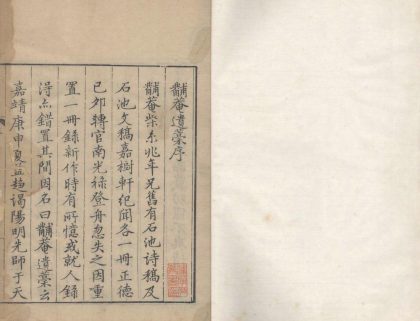 黼菴遺藁序
黼菴柴系兆年兄舊有石池詩稿及
石池文稿嘉樹軒紀聞各一冊正德
己夘轉官南光祿登舟忽失之因重
置一冊錄新作時有所憶或就人錄
得亦錯置其間因名曰黼菴遺藁云
嘉靖庚申夏五趨謁陽明先師于天